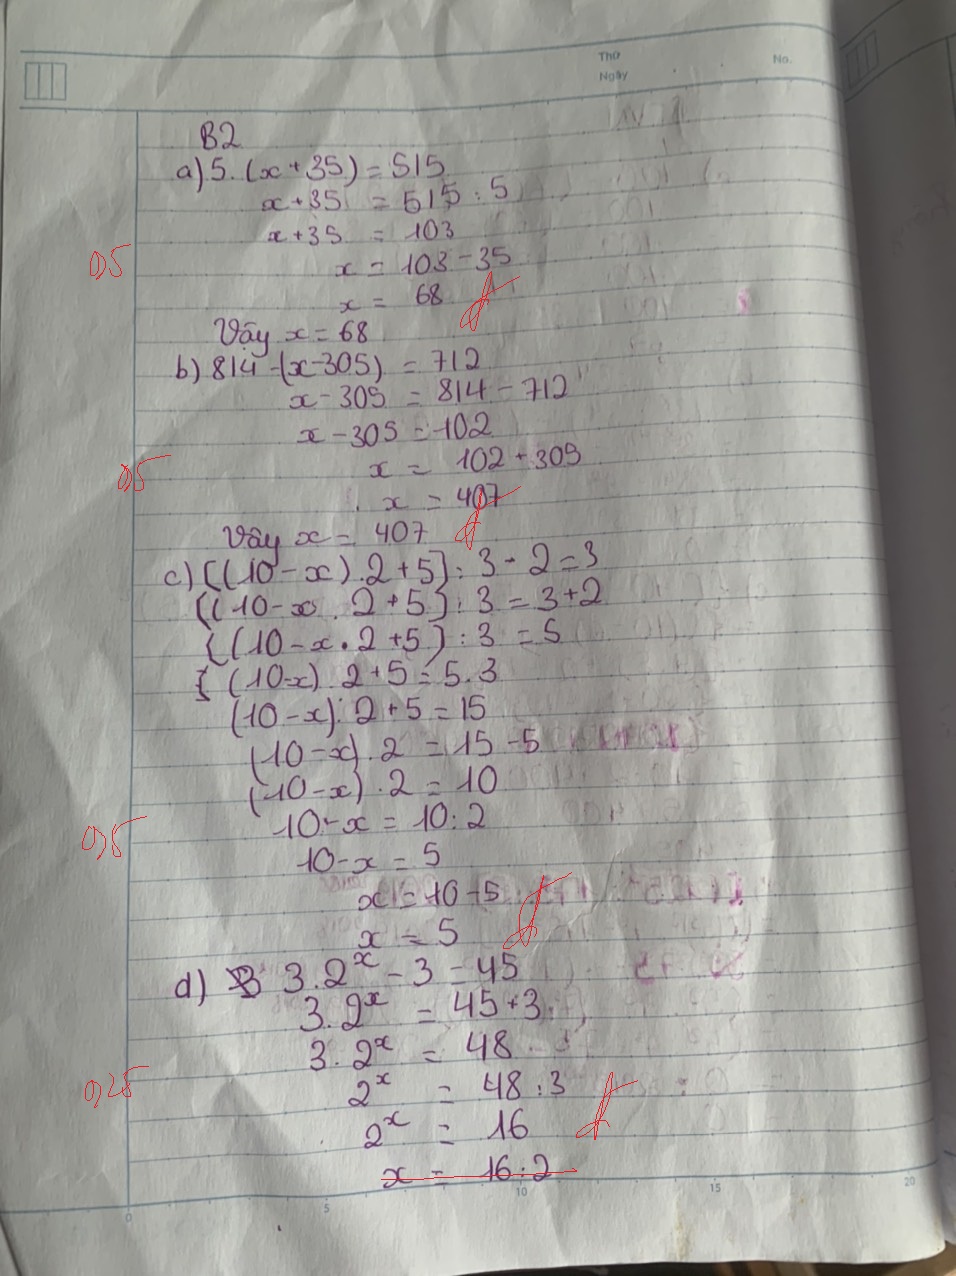 Thứ
Ngày
No.
B2
a) 5. (x + 35) = 515
x + 35 = 515 : 5
x + 35 = 103
0,5
x = 103 - 35
x = 68
Vậy x = 68
b) 814 - (x - 305) = 712
x - 305 = 814 - 712
x - 305 = 102
0,5
x = 102 + 305
x = 407
Vậy x = 407
c) [(10 - x) . 2 + 5] : 3 - 2 = 3
[(10 - x . 2 + 5] : 3 = 3 + 2
[(10 - x . 2 + 5] : 3 = 5
[ (10 - x) . 2 + 5 = 5 . 3
(10 - x) . 2 + 5 = 15
(10 - x) . 2 = 15 - 5
(10 - x) . 2 = 10
0,5
10 - x = 10 : 2
10 - x = 5
x = 10 - 5
x = 5
d) 3 . 2ˣ - 3 = 45
3 . 2ˣ = 45 + 3
3 . 2ˣ = 48
0,25
2ˣ = 48 : 3
2ˣ = 16
x = 16 : 2
0 5 10 15 20